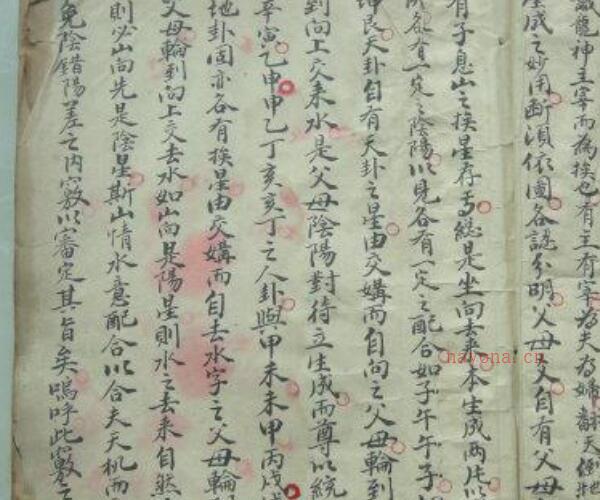 龍神主宰而為挨也有主有宰為夫為婦翻天倒地
生成之妙用斷須依圖各認分明父母又自有父母
有子息山之挨星存焉總是坐向去來本生成兩片以
各有一定之陰陽以見各有一定之配合如子午午子
坤艮天卦自有天卦之星由交媾而自向之父母輪到
到向上交來水是父母陰陽對待立生成而尊以統
辛寅乙申申乙丁亥亥丁之人卦與甲未未甲丙戌戌
地卦固亦各有挨星由交媾而自去水字之父母輪
父母輪到向上交去水如山向是陽星則水之去來自然
則必山向先是陰星斯山情水意配合以合夫天机而
免陰錯陽差之內竅以審定其旨矣嗚呼此竅之
nayona.cn